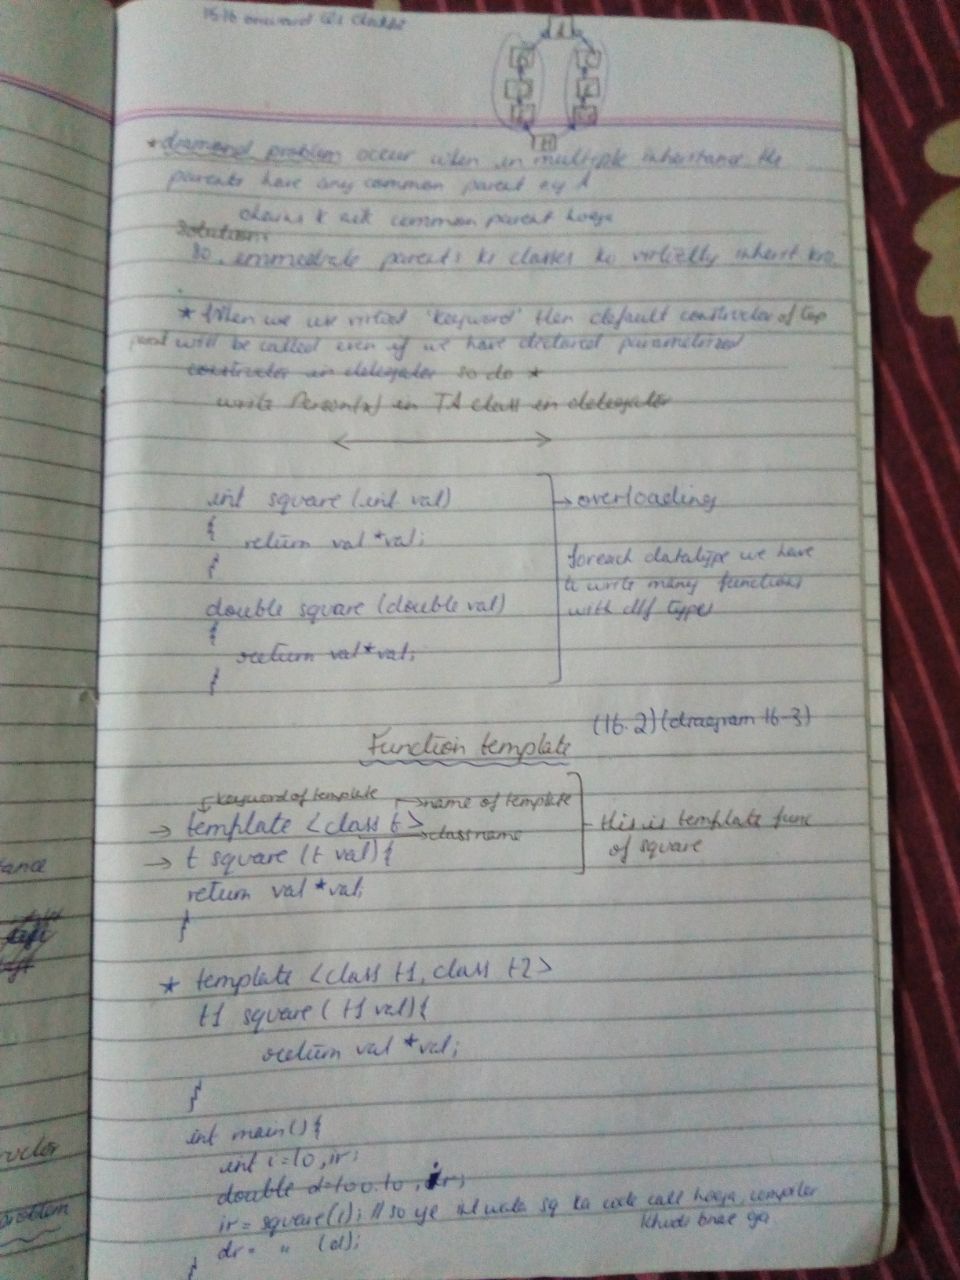 15.16 onward
A
H
* diamond problem occur when in multiple inheritance the
parents have any common parent eg A
common parent hoga
Solution:
So, immediate parents ki classes ko virtually inherit kro.
* When we use virtual 'keyword' then default constructor of top
parent will be called even if we have declared parametrized
constructor in delegater so do *
write Person(x) in TA class in delegater
int square (int val)
{
return val *val;
}
double square (double val)
{
return val*val;
}
→ overloading
foreach datatype we have
to write many functions
with diff types
(16.2)(diagram 16-3)
Function template
keyword of template
name of template
→ template <class t>
→ class name
→ t square (t val){
return val *val;
}
this is template func
of square
* template <class t1, class t2>
t1 square ( t1 val){
return val *val;
}
int main(){
int i=10, ir;
double d=100.10, dr;
ir = square(i); // so ye int wala sq ka code call hoga, compiler
khudi bnae ga
dr = " (d);
}
tance
ructor
problem